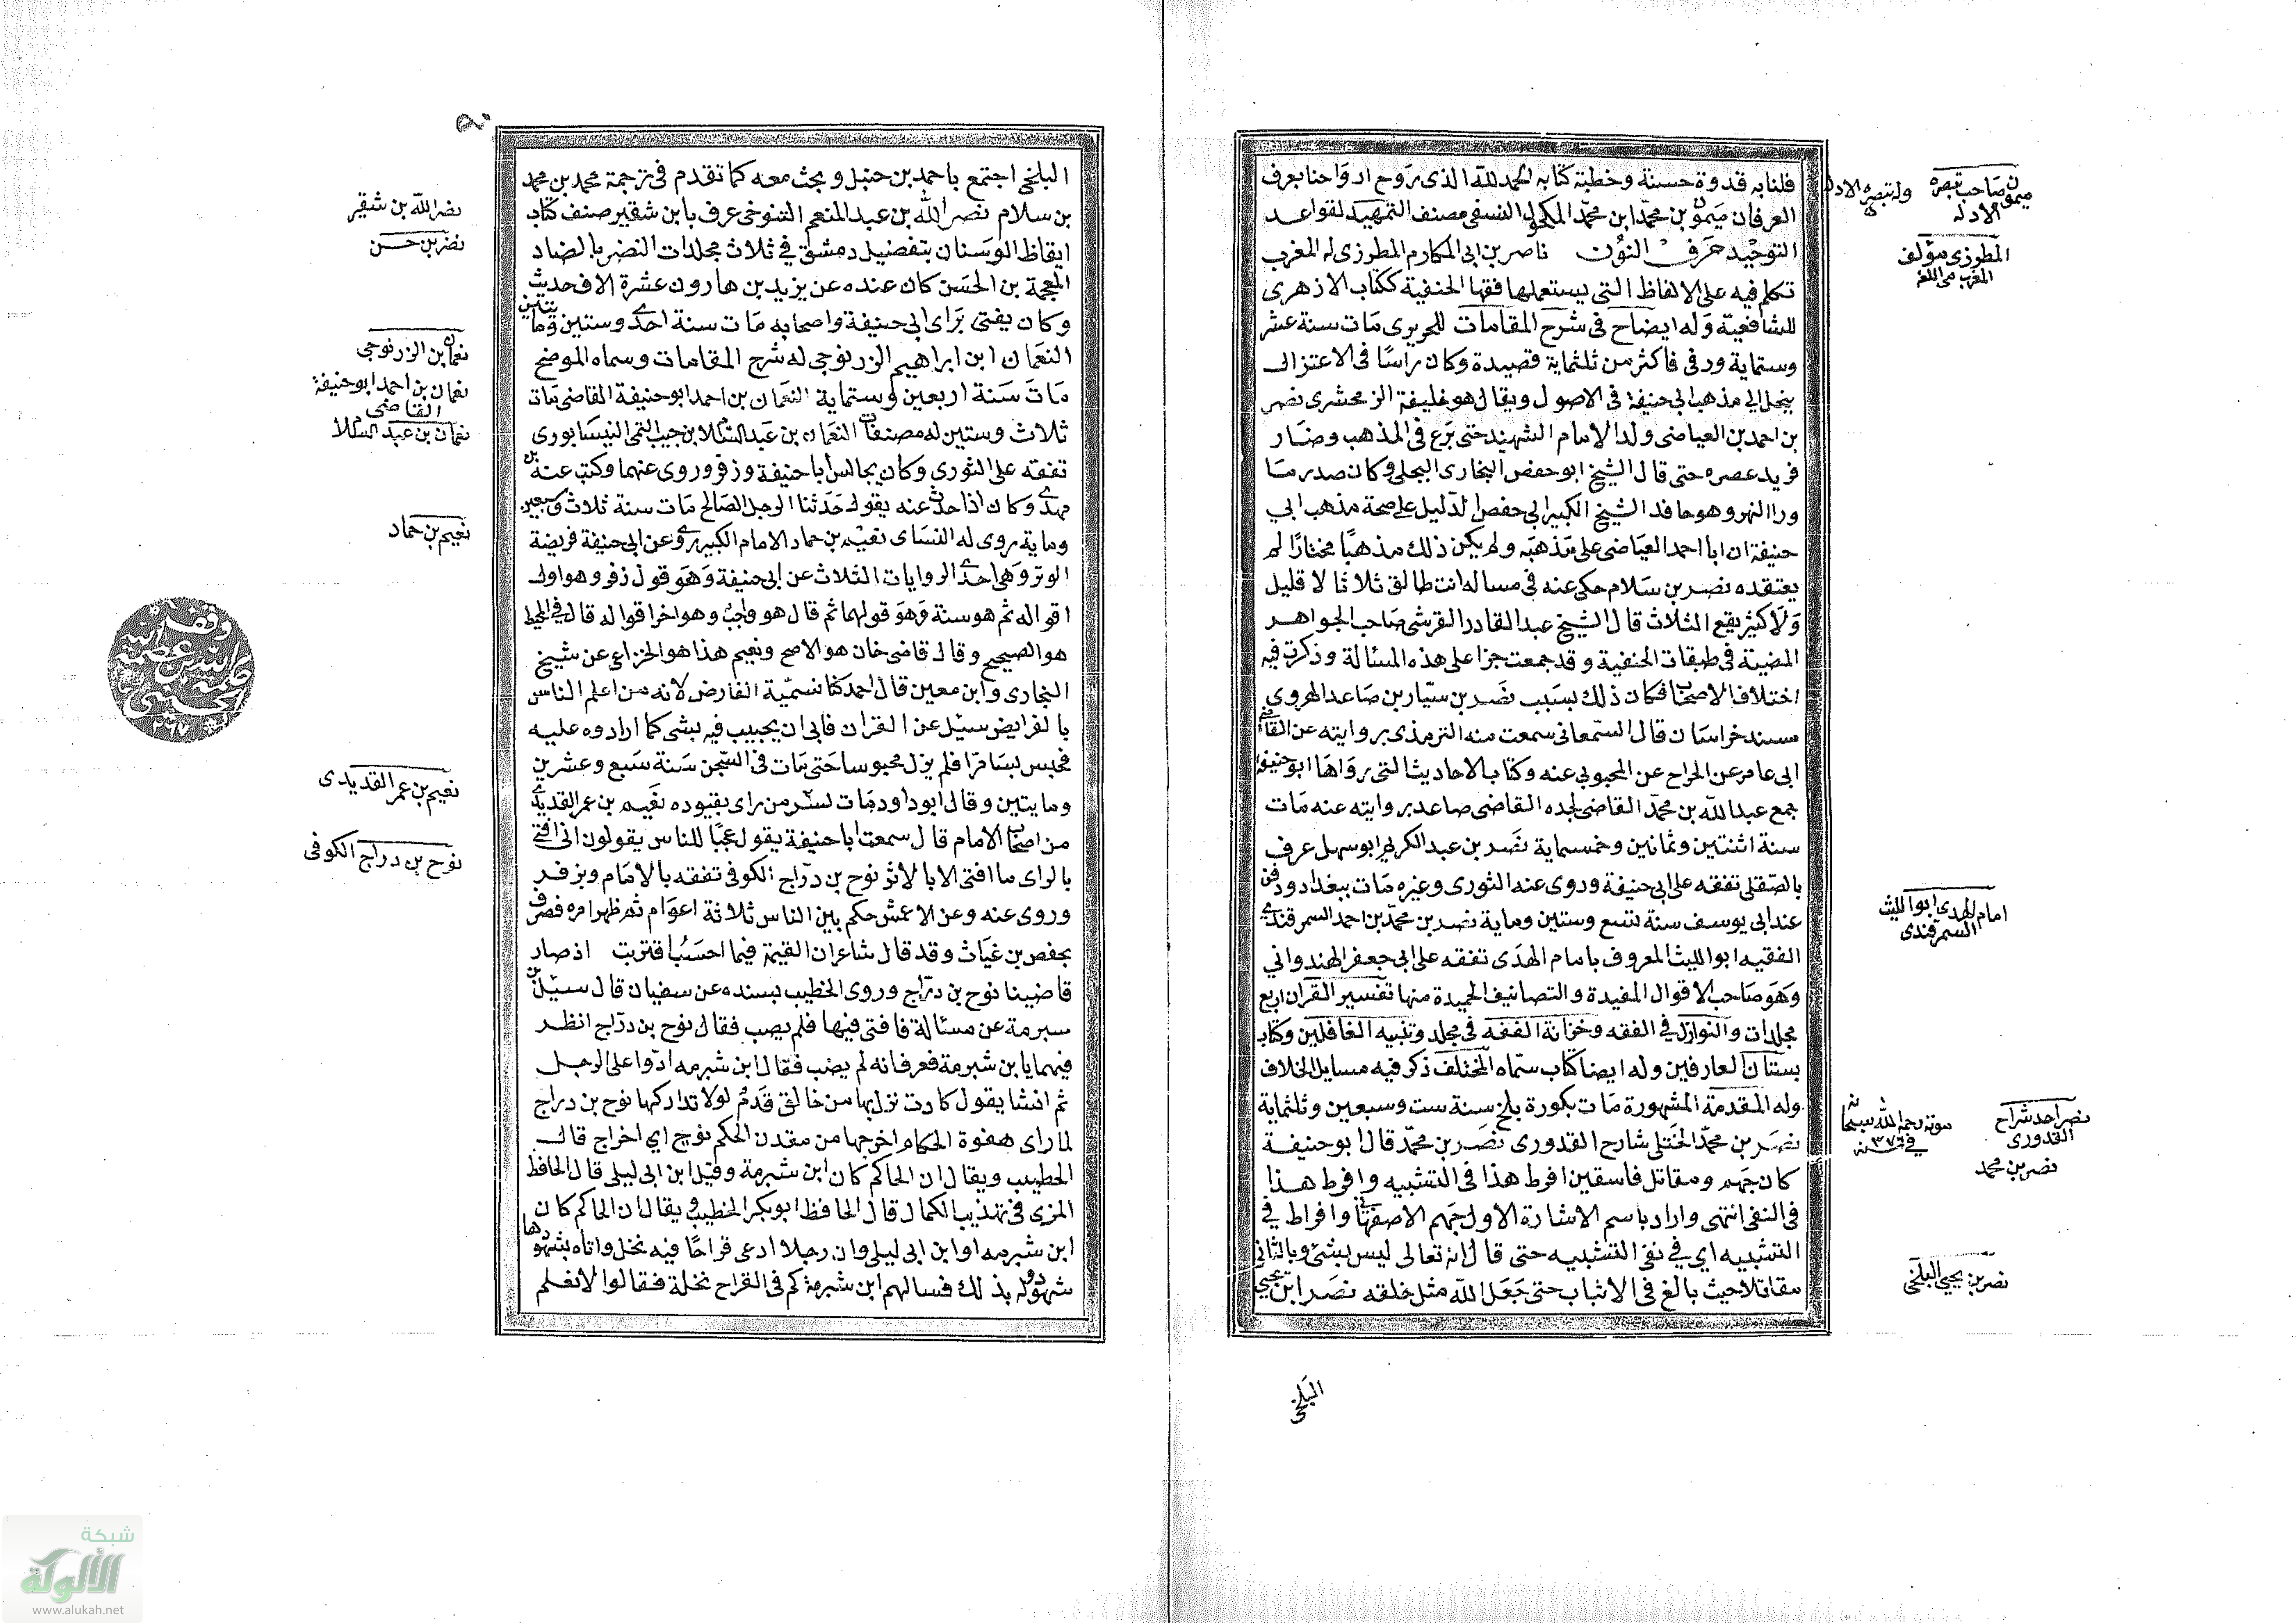 فلنا به قدوة حسنة وخطبة كتابه الحمد لله الذى روح ارواحنا بعرف
العرفان ميمون بن محمد ابن محمد المكحولى النسفى مصنف التمهيد لقواعد
التوحيد حرف النون ناصر بن ابى المكارم المطرزى له المغرب
تكلم فيه على الالفاظ التى يستعملها فقها الحنفية ككتاب الازهرى
للشافعية وله ايضاح فى شرح المقامات للحريرى مات سنة عشر
وستماية ورثى فاكثر من ثلثماية قصيدة وكان راسا فى الاعتزال
ينحل الى مذهب ابى حنيفة فى الاصول ويقال هو خليفة الزمحشرى نصر
بن احمد بن العياضى ولد الامام الشهيد حتى برع فى المذهب وصار
فريد عصره حتى قال الشيخ ابو حفص البخارى البجلى وكان صدر ما
ورا النهر وهو حافد الشيخ الكبير ابى حفص الدليل على صحة مذهب ابي
حنيفة ان ابا احمد العياضى على مذهبه ولم يكن ذلك مذهبا مختارا لم
يعتقده نصر بن سلام حكى عنه فى مساله انت طالق ثلاثا لا قليل
ولا كثير يقع الثلاث قال الشيخ عبد القادر القرشى صاحب الجواهر
المضية فى طبقات الحنفية وقد جمعت جزا على هذه المسالة وذكرت فيه
اختلاف الاصحاب فكان ذلك بسبب نصر بن سيار بن صاعد الهروى
مسند خراسان قال السمعانى سمعت منه الترمذى بروايته عن القاضى
ابى عامر عن الجراح عن المحبوبى عنه وكتاب الاحاديث التى رواها ابو حنيفة
جمع عبد الله بن محمد القاضى لجده القاضى صاعد بروايته عنه مات
سنة اثنتين وثمانين وخمسماية نصر بن عبد الكريم ابو سهل عرف
بالصقلى تفقه على ابى حنيفة وروى عنه الثورى وغيره مات ببغداد ودفن
عند ابى يوسف سنة تسع وستين وماية نصر بن محمد بن احمد السمرقندى
الفقيه ابو الليث المعروف بامام الهدى تفقه على ابى جعفر الهندواني
وهو صاحب الاقوال المفيدة والتصانيف الحميدة منها تفسير القران اربع
مجلدات والنوازل في الفقه وخزانة الفقه فى مجلد وتنبيه الغافلين وكتاب
بستان العارفين وله ايضا كتاب سماه المختلف ذكر فيه مسايل الخلاف
وله المقدمة المشهورة مات بكورة بلخ سنة ست وسبعين وثلثماية
نصر بن محمد الختلى شارح القدورى نصر بن محمد قال ابو حنيفة
كان جهم ومقاتل فاسقين افرط هذا فى التشبيه وافرط هذا
فى النفى انتهى واراد باسم الاشارة الاول جهم الاصفهانى وافراط في
التشبيه اي في نفى التشبيه حتى قال انه تعالى ليس بشئ وبالثانى
مقاتلا حيث بالغ فى الاثبات حتى جعل الله مثل خلقه نصر ابن يحيى
البلخى
ميمون صاحب تبصره الادله
وله تبصرة الادله
المطرزى مؤلف
المغرب من اللغة
امام الهدى ابو الليث
السمرقندى
نصر احد شراح
القدورى
موته رحمه الله سبحانه
فى ٣٧٦ سنه
نصر بن محمد
نصر بن يحيى البلخى
البلخى اجتمع باحمد بن حنبل وبحث معه كما تقدم فى ترجمة محمد بن محمد
بن سلام نصر الله بن عبد المنعم التنوخى عرف بابن شقير صنف كتاب
ايقاظ الوسنان بتفضيل دمشق في ثلاث مجلدات النضر بالضاد
المعجمة بن الحسن كان عنده عن يزيد بن هارون عشرة الاف حديث
وكان يفتى براى ابي حنيفة واصحابه مات سنة احدى وستين وماتين
النعمان ابن ابراهيم الزرنوجى له شرح المقامات وسماه الموضح
مات سنة اربعين وستماية النعمان بن احمد ابو حنيفة القاضى مات
ثلاث وستين له مصنفات النعمان بن عبد السلام بن حبيب التمى النيسابورى
تفقه على الثورى وكان يجالس ابا حنيفة وزفر وروى عنهما وكتب عنه بن
مهدى وكان اذا حدث عنه يقول حدثنا الرجل الصالح مات سنة ثلاث وسبعين
وماية روى له النساى نعيم بن حماد الامام الكبير روى عن ابى حنيفة فريضة
الوتر وهى احدى الروايات الثلاث عن ابى حنيفة وهو قول زفر وهو اول
اقواله ثم هو سنة وهو قولهما ثم قال هو واجب وهو اخر اقواله قال فى المحيط
هو الصحيح وقال قاضى خان هو الاصح ونعيم هذا هو الخزاعى عن شيخ
البخارى وابن معين قال احمد كنا نسميه الفارض لانه من اعلم الناس
بالفرايض سئيل عن القران فابى ان يجيب فيه بشى كما ارادوه عليه
فحبس بسامرا فلم يزل محبوسا حتى مات فى السجن سنة سبع وعشرين
ومايتين وقال ابو داود مات لسر من راى بقيوده نعيم بن عمر القديدى
من اصحاب الامام قال سمعت ابا حنيفة يقول عجبا للناس يقولون انى افتى
بالراى ما افتى الا بالاثر نوح بن دراج الكوفى تفقه بالامام وبزفر
وروى عنه وعن الاعمش حكم بين الناس ثلاثة اعوام ثم ظهر امره فصرف
بحفص بن غياث وقد قال شاعر ان القيمة فيما احسب اقتربت اذ صار
قاضينا نوح بن دراج وروى الخطيب بسنده عن سفيان قال سئيل بن
سبرمة عن مسئالة فافتى فيها فلم يصب فقال نوح بن دراج انظر
فيهما يا بن شبرمة فعرف انه لم يصب فقال ابن شبرمه ادوا على الرجل
ثم انشا يقول كادت تزل بها من حالق قدم لولا تداركها نوح بن دراج
لما راى هفوة الحكام اخرجها من مقدن الحكم نوح اي اخراج قال
الخطيب ويقال ان الحاكم كان ابن شبرمة وقيل ابن ابى ليلى قال الحافظ
المزى فى تهذيب الكمال قال الحافظ ابو بكر الخطيب ويقال ان الحاكم كان
ابن شبرمه او ابن ابى ليلى وان رجلا ادعى قراحا فيه نخل واتاه بشهود
شهدوا له بذلك فسالهم ابن شبرمة كم فى القراح نخلة فقالوا لا نعلم
نصر الله بن شقير
نضر بن حسن
نعمان بن الزرنوجى
نعمان بن احمد ابو حنيفة
القاضى
نعمان بن عبد السلام
نعيم بن حماد
نعيم بن عمر القديدى
نوح بن دراج الكوفى
شبكة
الألوكة
www.alukah.net